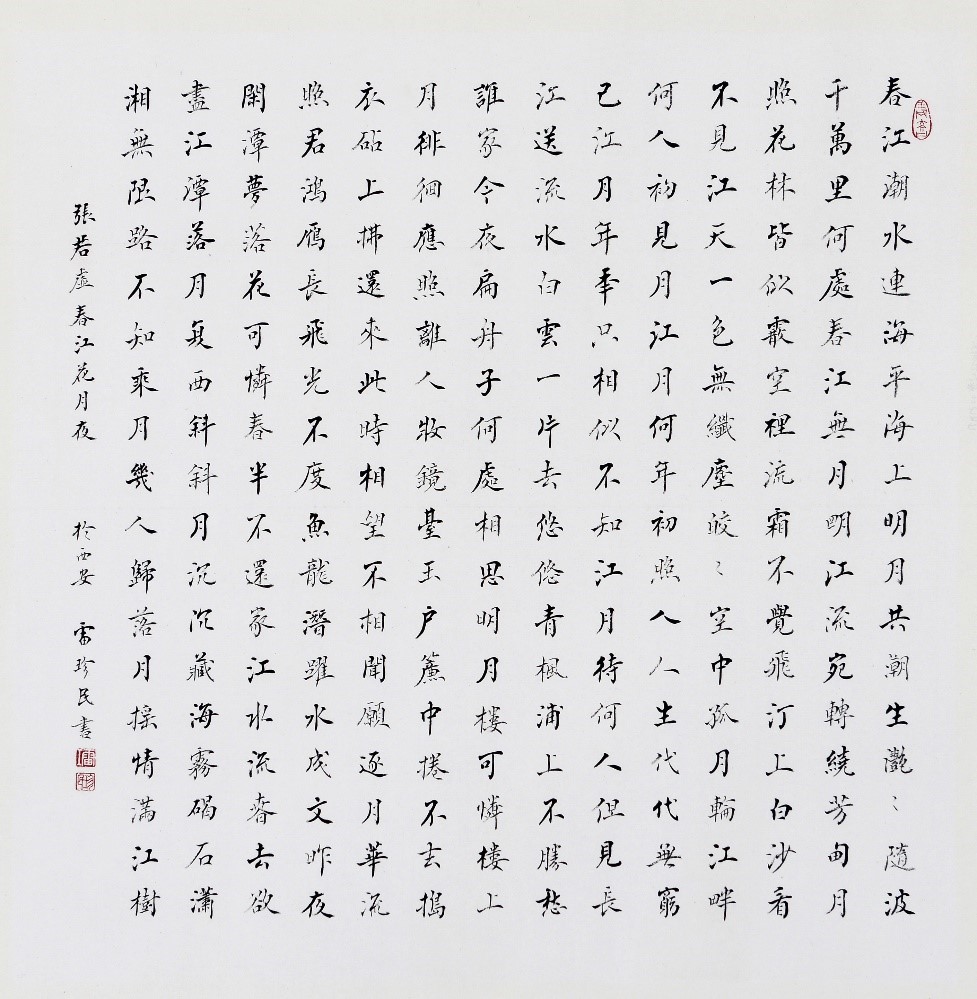 春江潮水連海平海上明月共潮生灩〻隨波
千萬里何處春江無月明江流宛轉繞芳甸月
照花林皆似霰空裡流霜不覺飛汀上白沙看
不見江天一色無纖塵皎〻空中孤月輪江畔
何人初見月江月何年初照人人生代代無窮
已江月年秊只相似不知江月待何人但見長
江送流水白雲一片去悠悠青楓浦上不勝愁
誰家今夜扁舟子何處相思明月樓可憐樓上
月徘徊應照離人妝鏡臺玉戶簾中捲不去搗
衣砧上拂還來此時相望不相聞願逐月華流
照君鴻雁長飛光不度魚龍潛躍水成文昨夜
閑潭夢落花可憐春半不還家江水流春去欲
盡江潭落月复西斜斜月沉沉藏海霧碣石瀟
湘無限路不知乘月幾人歸落月搖情滿江樹
張若虛春江花月夜 於西安 雷珍民書